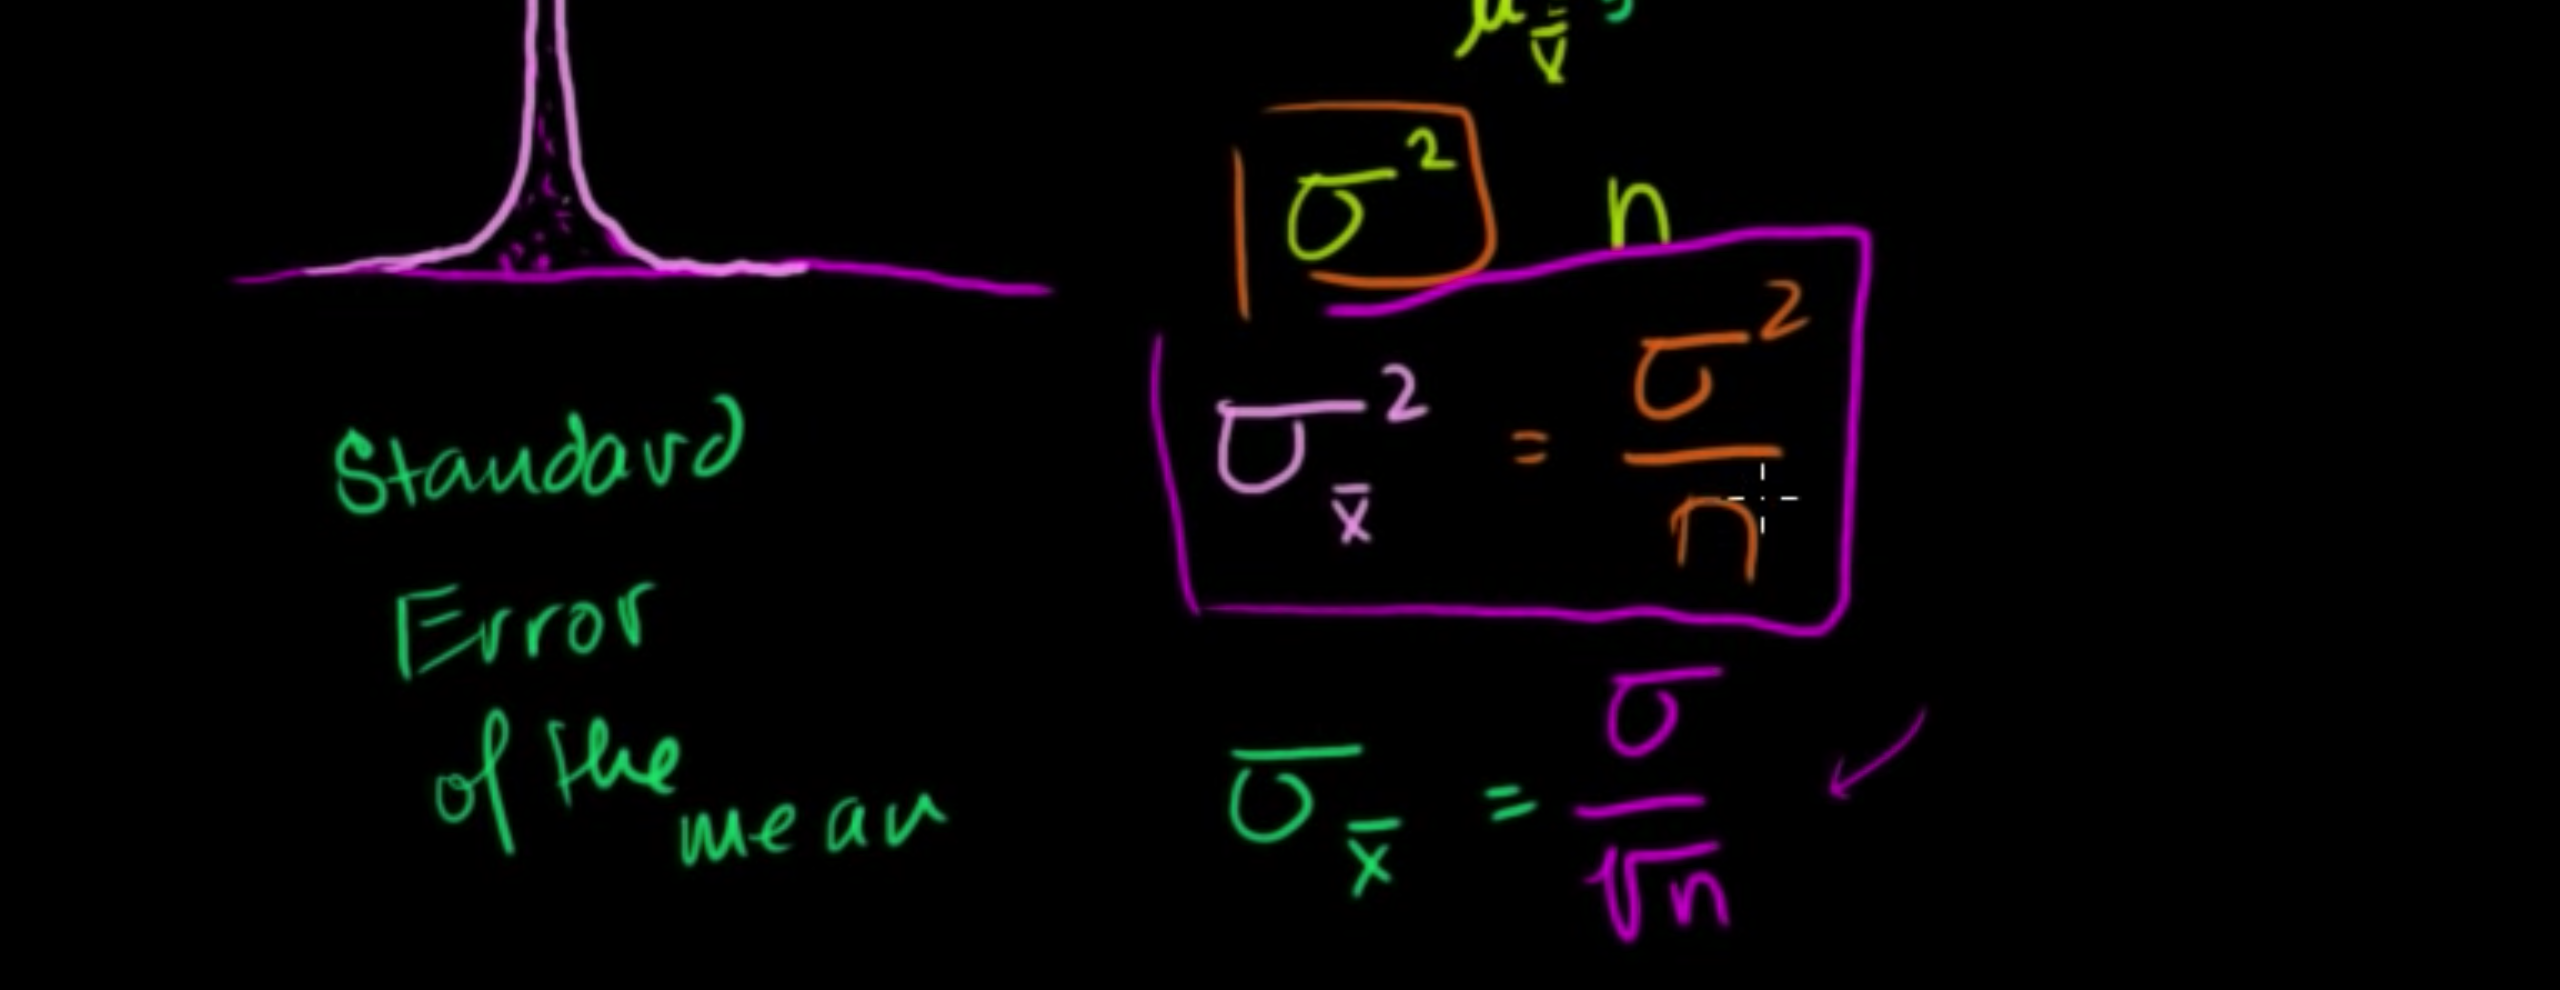 μ_x̄
σ² n
σ²_x̄ = σ²/n
Standard
Error
of the
mean
σ_x̄ = σ/√n